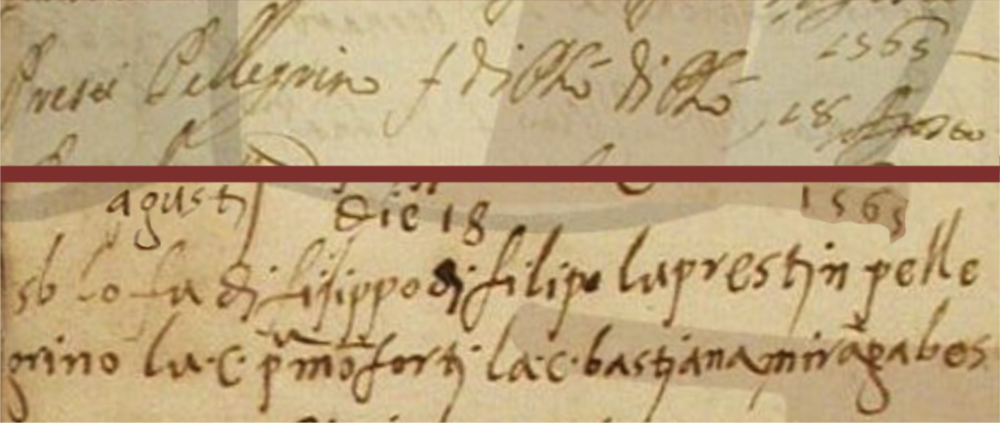 1565
Presti Pellegrino f di Phō di Phō, 18 Agosto
agusti die 18 1565
sb lo fu di filippo di filipo lu presti n pelle
grino lu .c. pmō forti la .c. bastiana miragabes